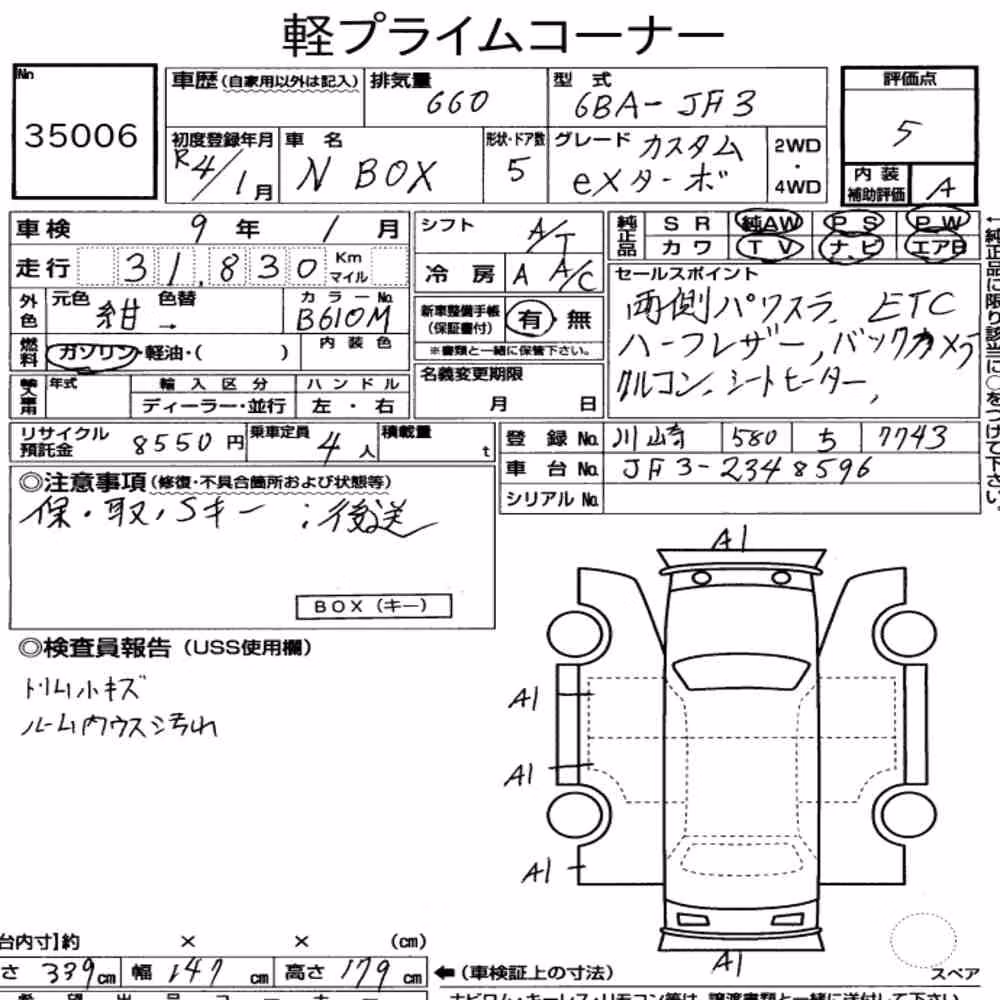 軽プライムコーナー
No
35006
車歴(自家用以外は記入)
排気量 660
型式 6BA-JF3
評価点 5
初度登録年月 R4/1月
車名 N BOX
形状・ドア数 5
グレード カスタム
eXターボ
2WD
・
4WD
内装
補助評価 A
車検 9年 1月
走行 31,830 Km
マイル
外色 元色 紺 色替 →
カラーNo. B610M
燃料 ガソリン・軽油・( )
内装色
年式
輸入区分
ディーラー・並行
ハンドル
左・右
シフト A/T
冷房 A A/C
新車整備手帳
(保証書付) 有・無
※書類と一緒に保管下さい。
名義変更期限
月 日
純正品 SR 純AW PS PW
カワ TV ナビ エアB
セールスポイント
両側パワスラ、ETC
ハーフレザー,バックカメラ
クルコン、シートヒーター,
←純正品に限り該当に○をつけて下さい。
リサイクル
預託金 8550円
乗車定員 4人
積載量 t
登録No. 川崎 580 ち 7743
車台No. JF3-2348596
シリアルNo.
◎注意事項(修復・不具合箇所および状態等)
保・取・Sキー ;後送
BOX(キー)
◎検査員報告(USS使用欄)
トリム小キズ
ルーム内ウス汚れ
A1
A1
A1
A1
A1
スペア
台内寸】約 × × (cm)
さ 339cm 幅 147cm 高さ 179cm
←(車検証上の寸法)
ナビロム・キーレス・リモコン等は、譲渡書類と一緒に送付して下さい。